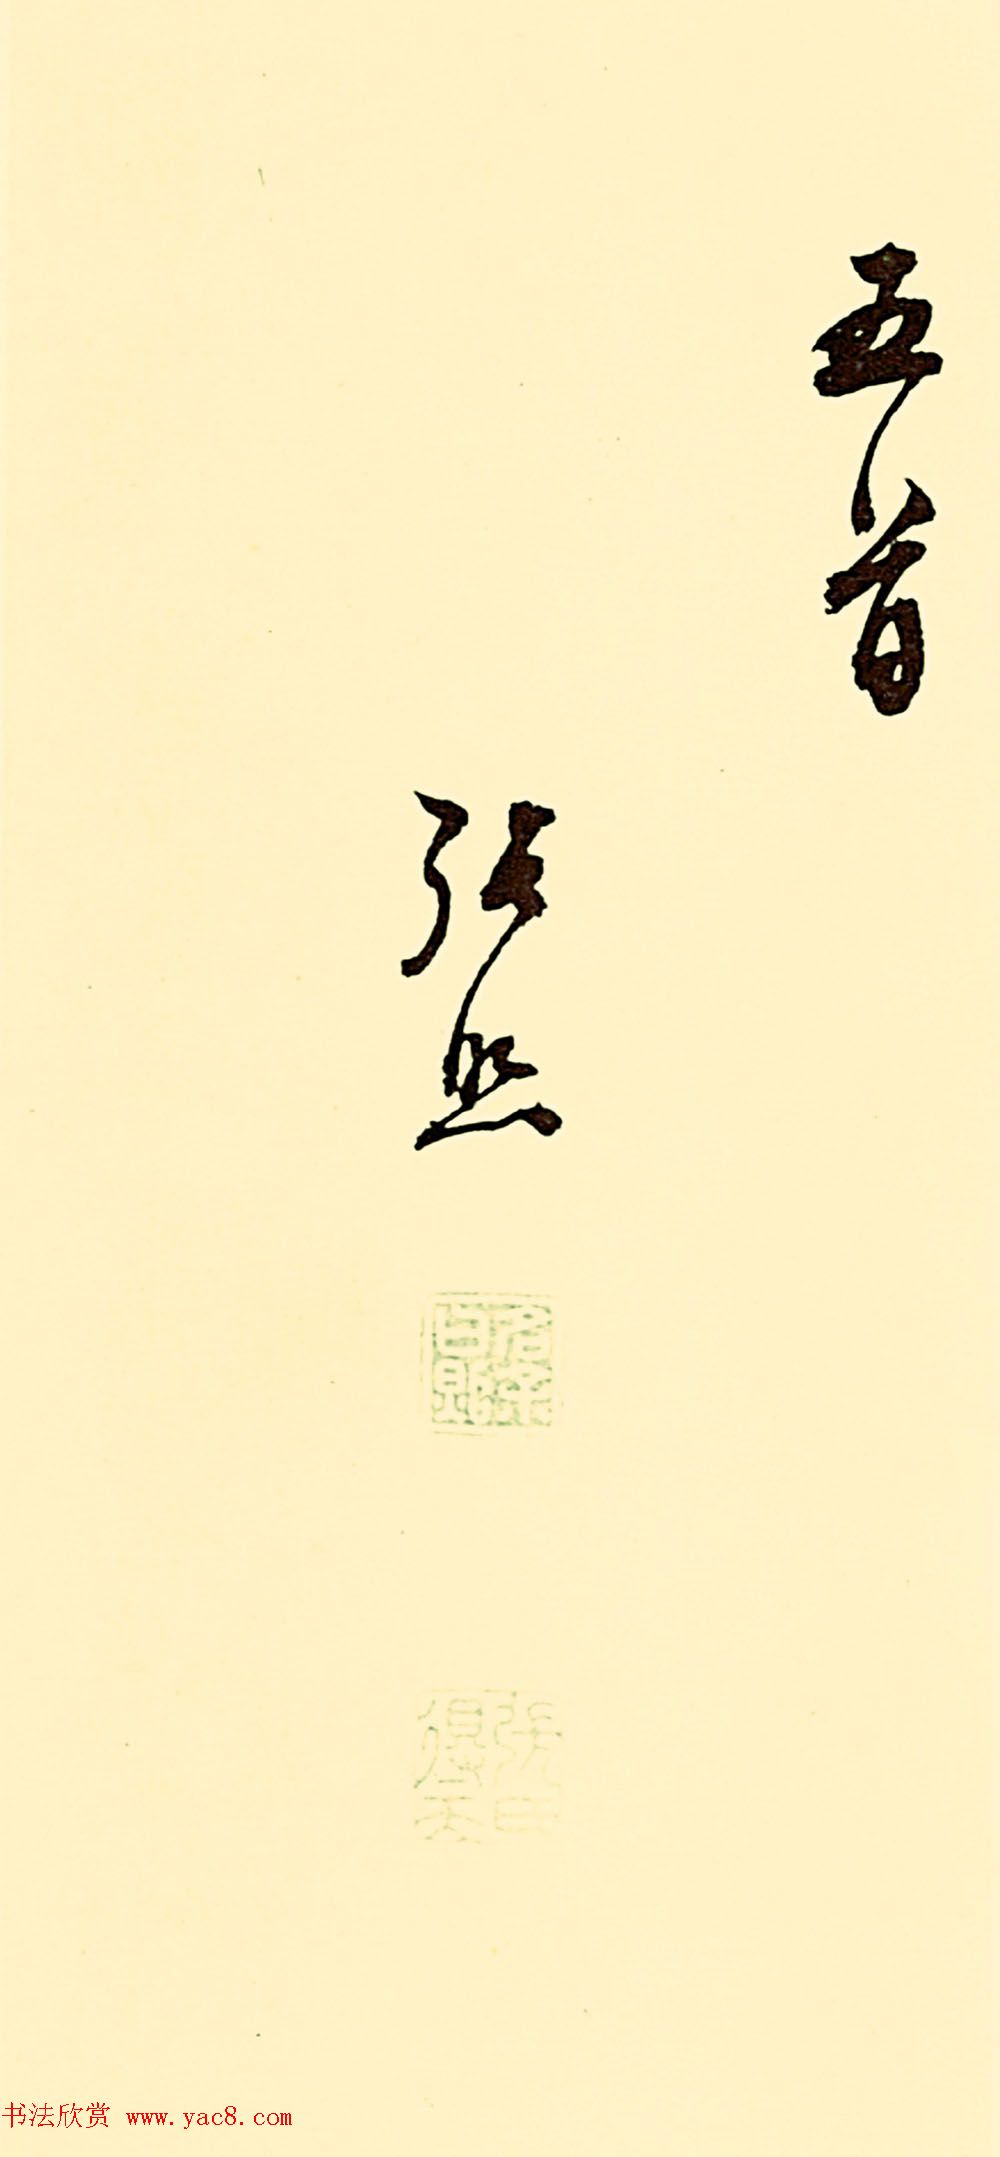 五首
張照
书法欣赏 www.yac8.com